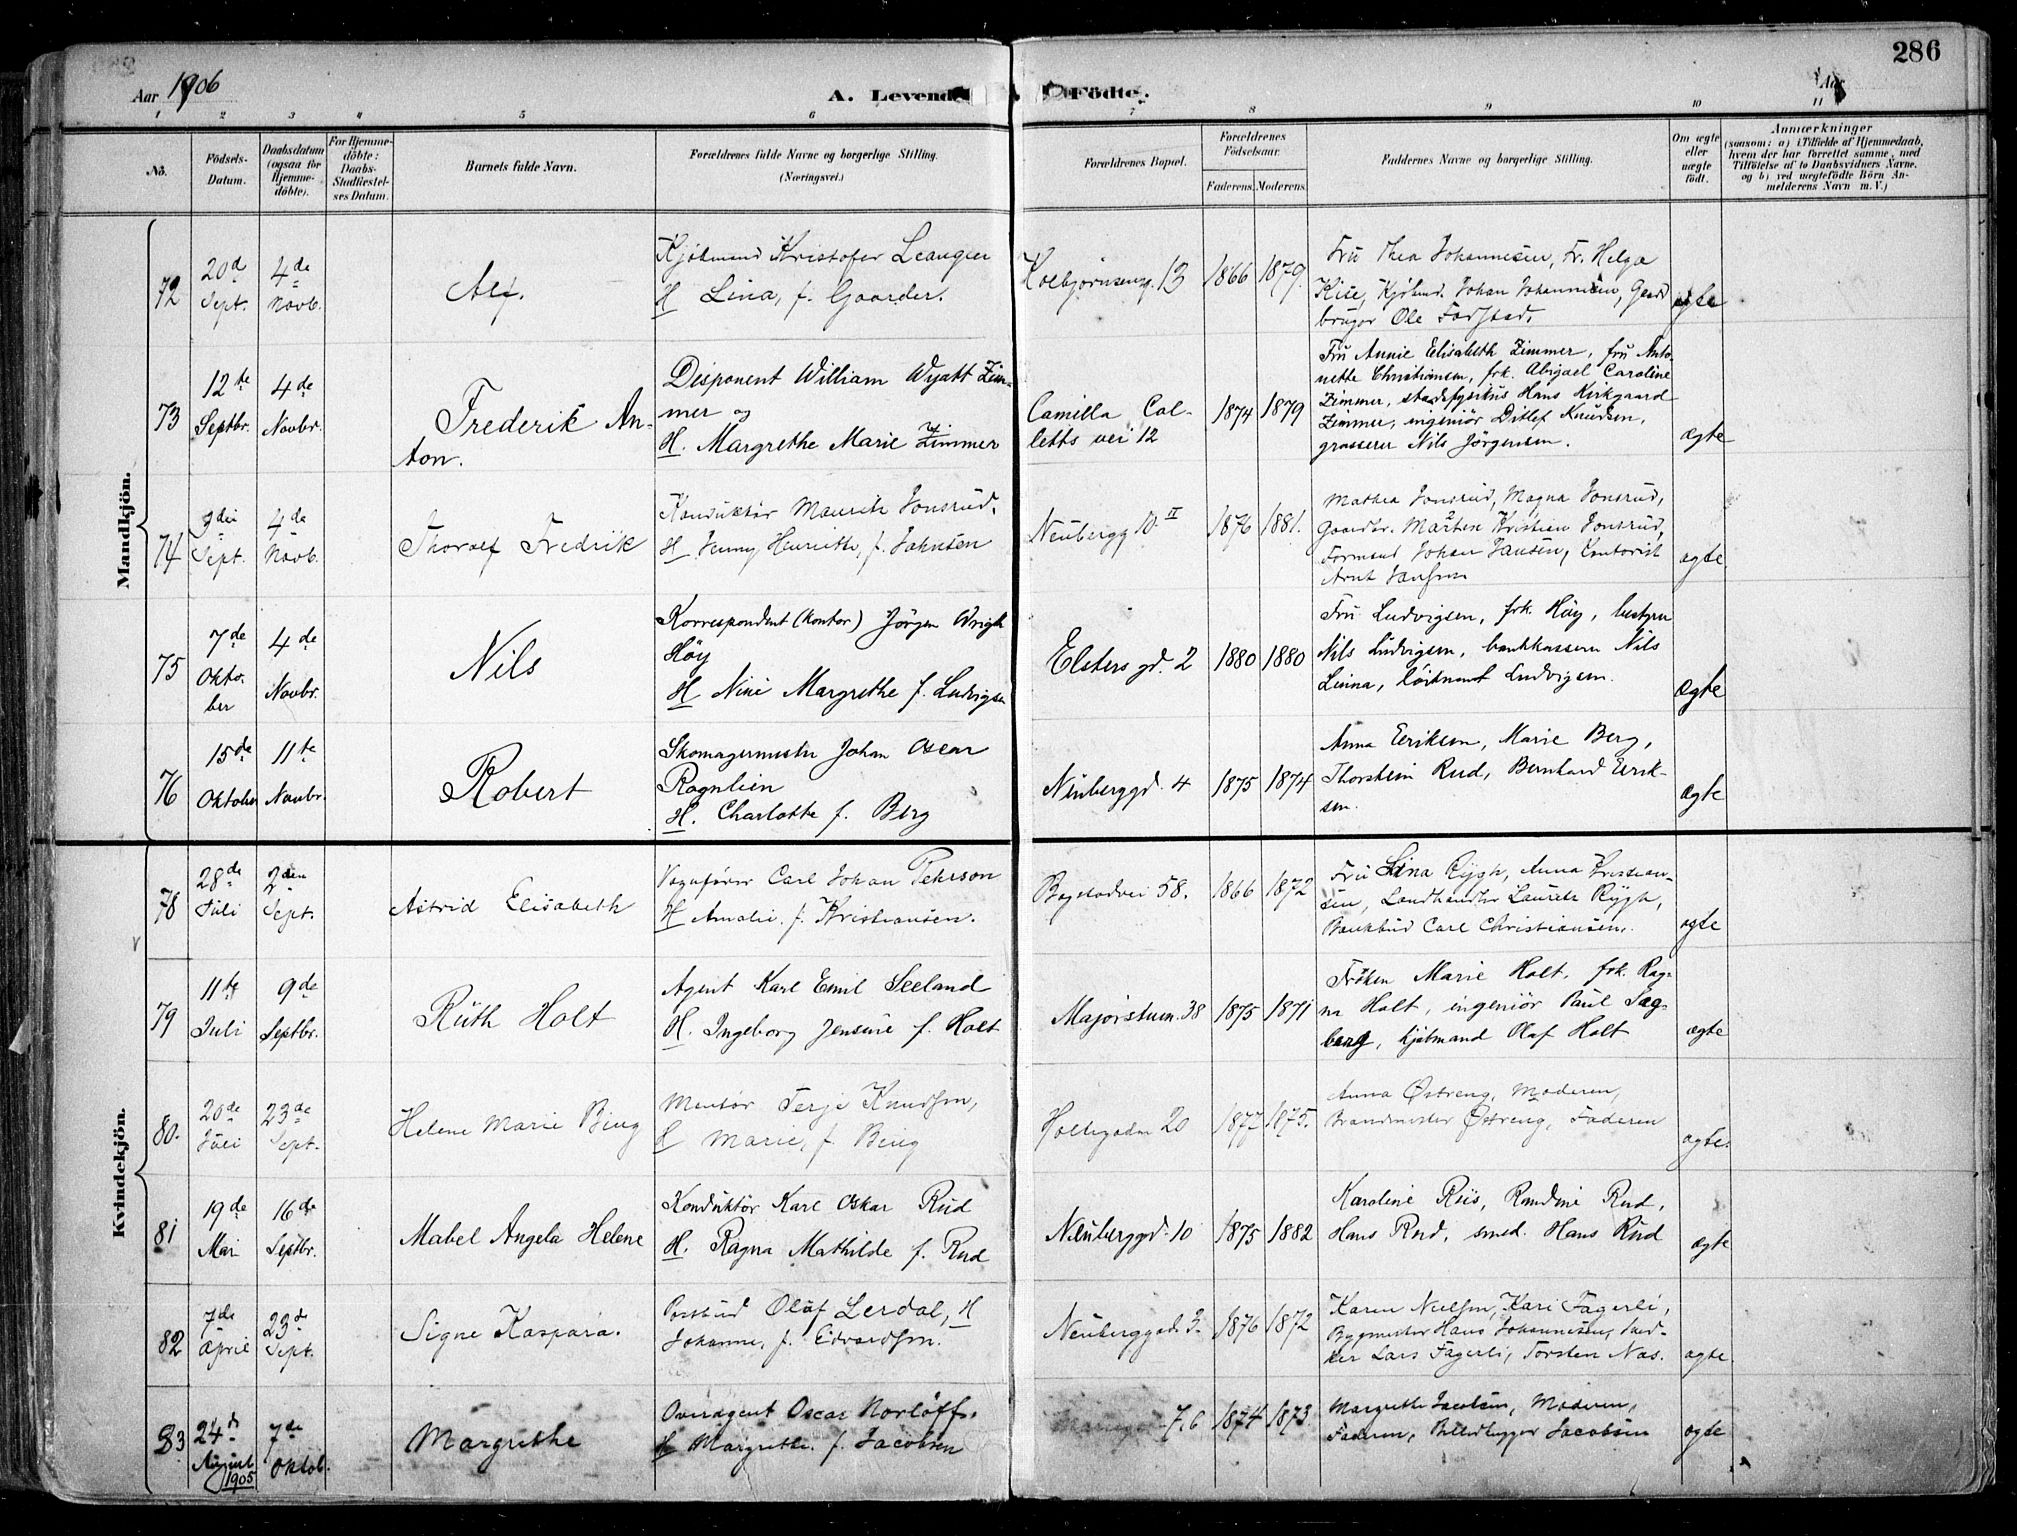 286
Aar 1906
A. Levende Födte.
Aar
1 2 3 4 5 6 7 8 9 10 11
No.
Födsels-
Datum.
Daabsdatum
(ogsaa for
Hjemme-
döbte).
For Hjemme-
döbte:
Daabs-
Stadfæstel-
ses Datum.
Barnets fulde Navn.
Forældrenes fulde Navne og borgerlige Stilling.
(Næringsvei.)
Forældrenes Bopæl.
Forældrenes
Födselsaar.
Faderens. Moderens.
Faddernes Navne og borgerlige Stilling.
Om ægte
eller
uægte
födt.
Anmærkninger
(saasom: a) i Tilfælde af Hjemmedaab,
hvem der har forrettet samme, med
Tilföielse af to Daabsvidners Navne,
og b) ved uægtefödte Börn An-
melderens Navn m. V.)
Mandkjön.
72
20de
Sept.
4de
Novb.
Alf.
Kjøbmand Kristofer Leangen
H Lina, f. Gaarder.
Kolbjørnseng. 13
1866 1879.
Fru Thea Johannesen, Fr. Helga
Kise, Kjøbmd. Johan Johannesen, Gaard
bruger Ole Fodstad.
ægte
73
12te
Septbr.
4de
Novbr.
Frederik An-
ton.
Disponent William Wyatt Zim-
mer og
H. Margrethe Marie f. Zimmer
Camilla Col-
letts vei 12
1874 1879
Fru Annie Elisabeth Zimmer, fru Anto-
nette Christiansen, frk. Abigael Caroline
Zimmer, stadsfysikus Hans Kirkgaard
Zimmer, ingeniör Ditlef Knudsen,
grosserer Nils Jörgensen.
ægte
74
3die
Sept.
4de
Novb.
Thoralf Fredrik
Konduktør Mauritz Jonsrud,
H Jenny Henriette, f. Johnsen
Neubergg 10 II
1876 1881.
Mathea Jonsrud, Magna Jonsrud,
Gaardbr. Marten Kristian Jonsrud,
Formand Johan Jansen, Contorist
Arnt Jansen
ægte
75
7de
Okto-
ber
4de
Novbr.
Nils
Korrespondent (Kontor) Jörgen Wright
Höy
H Nini Margrethe f. Ludvigsen
Elsters gd. 2
1880 1880
Fru Ludvigsen, frk. Höy, bestyrer
Nils Ludvigsen, bankkasserer Nils
Linna, löitnant Ludvigsen.
Ægte
76
15de
Oktober
11te
Novbr.
Robert
Skomagermester Johan Oscar
Rognlien
H. Charlotte f. Berg
Neuberggd. 4
1875 1874
Anna Eriksen, Marie Berg,
Thorstein Rud, Bernhard Erik-
sen.
Ægte
Kvindekjön.
78
28de
Juli
2den
Sept.
Astrid Elisabeth
Vognfører Carl Johan Pehrson
H Amalie f. Kristiansen.
Bogstadvei 58.
1866 1872
Fru Lina Rygh, Anna Kristian-
sen, Landhandler Laurits Rygh,
Bankbud Carl Christiansen.
ægte
79
11te
Juli
9de
Septbr.
Ruth Holt
Agent Karl Emil Seeland
H. Ingeborg Jensine f. Holt
Majorstuen. 38
1875 1871
Fröken Marie Holt, frk. Rag-
na Holt, ingeniör Paul Sæg-
berg, kjöbmand Olaf Holt
ægte
80.
20de
Juli
23de
Sept.
Helene Marie Bing
Montør Terje Knudsen,
H Marie, f. Bing
Holtegaden 20
1877 1875.
Anna Østreng, Moderen,
Brandmester Østreng, Faderen
ægte.
81
19de
Mai
16de
Septbr.
Mabel Angela Helene
Konduktör Karl Oskar Rud
H. Ragna Mathilde f. Rud
Neuberggd. 10
1875 1882
Karoline Riis, Randine Rud,
Hans Rud, smed. Hans Rud
ægte
82
7de
April
23de
Sept.
Signe Kaspara.
Postbud Olaf Lerdal, H
Johanne, f. Edvardsen.
Neuberggad. 3.
1876 1872
Karen Nielsen, Kari Fagerli,
Bygmester Hans Johannesen, Sned-
ker Lars Fagerli, Torsten Nas.
ægte
83
24de
August
1905
7de
Oktob.
Margrethe
Overagent Oscar Norløff,
H Margrethe f. Jacobsen
7.6
1874 1873
Margrethe Jacobsen, Moderen,
Faderen, Billedhugger Jacobsen
ægte